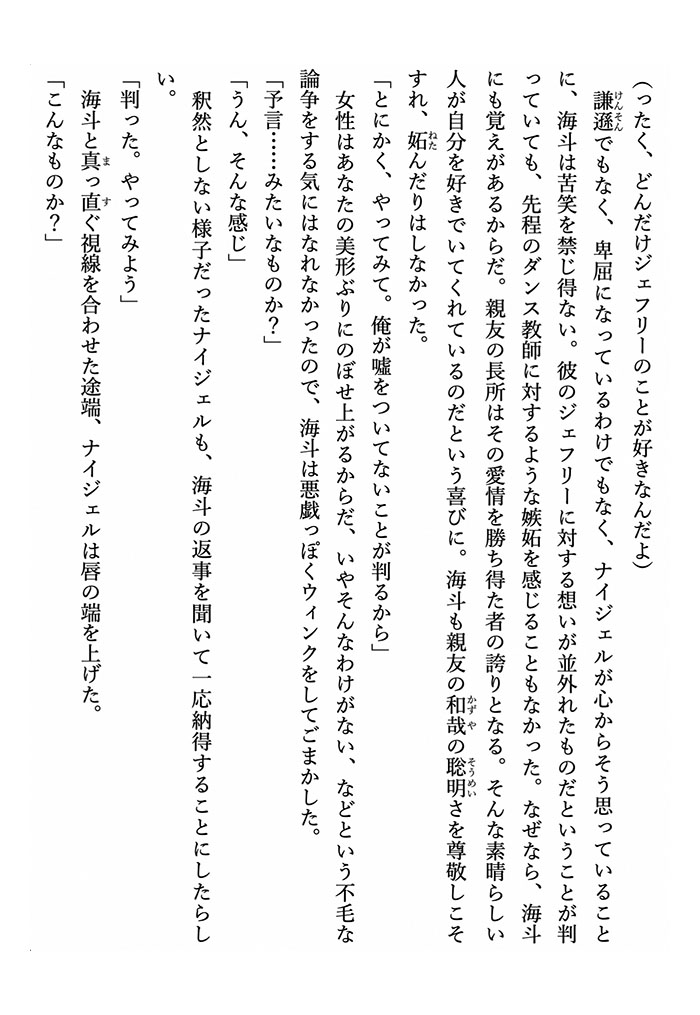 (ったく、どんだけジェフリーのことが好きなんだよ)
謙遜でもなく、卑屈になっているわけでもなく、ナイジェルが心からそう思っていること
に、海斗は苦笑を禁じ得ない。彼のジェフリーに対する想いが並外れたものだということが判
っていても、先程のダンス教師に対するような嫉妬を感じることもなかった。なぜなら、海斗
にも覚えがあるからだ。親友の長所はその愛情を勝ち得た者の誇りとなる。そんな素晴らしい
人が自分を好きでいてくれているのだという喜びに。海斗も親友の和哉の聡明さを尊敬しこそ
すれ、妬んだりはしなかった。
「とにかく、やってみて。俺が嘘をついてないことが判るから」
女性はあなたの美形ぶりにのぼせ上がるからだ、いやそんなわけがない、などという不毛な
論争をする気にはなれなかったので、海斗は悪戯っぽくウィンクをしてごまかした。
「予言……みたいなものか？」
「うん、そんな感じ」
釈然としない様子だったナイジェルも、海斗の返事を聞いて一応納得することにしたらし
い。
「判った。やってみよう」
海斗と真っ直ぐ視線を合わせた途端、ナイジェルは唇の端を上げた。
「こんなものか？」